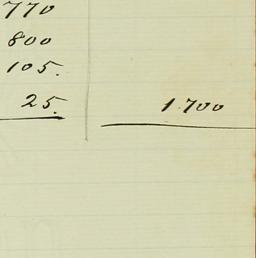 770
800
105.
25. 1.700